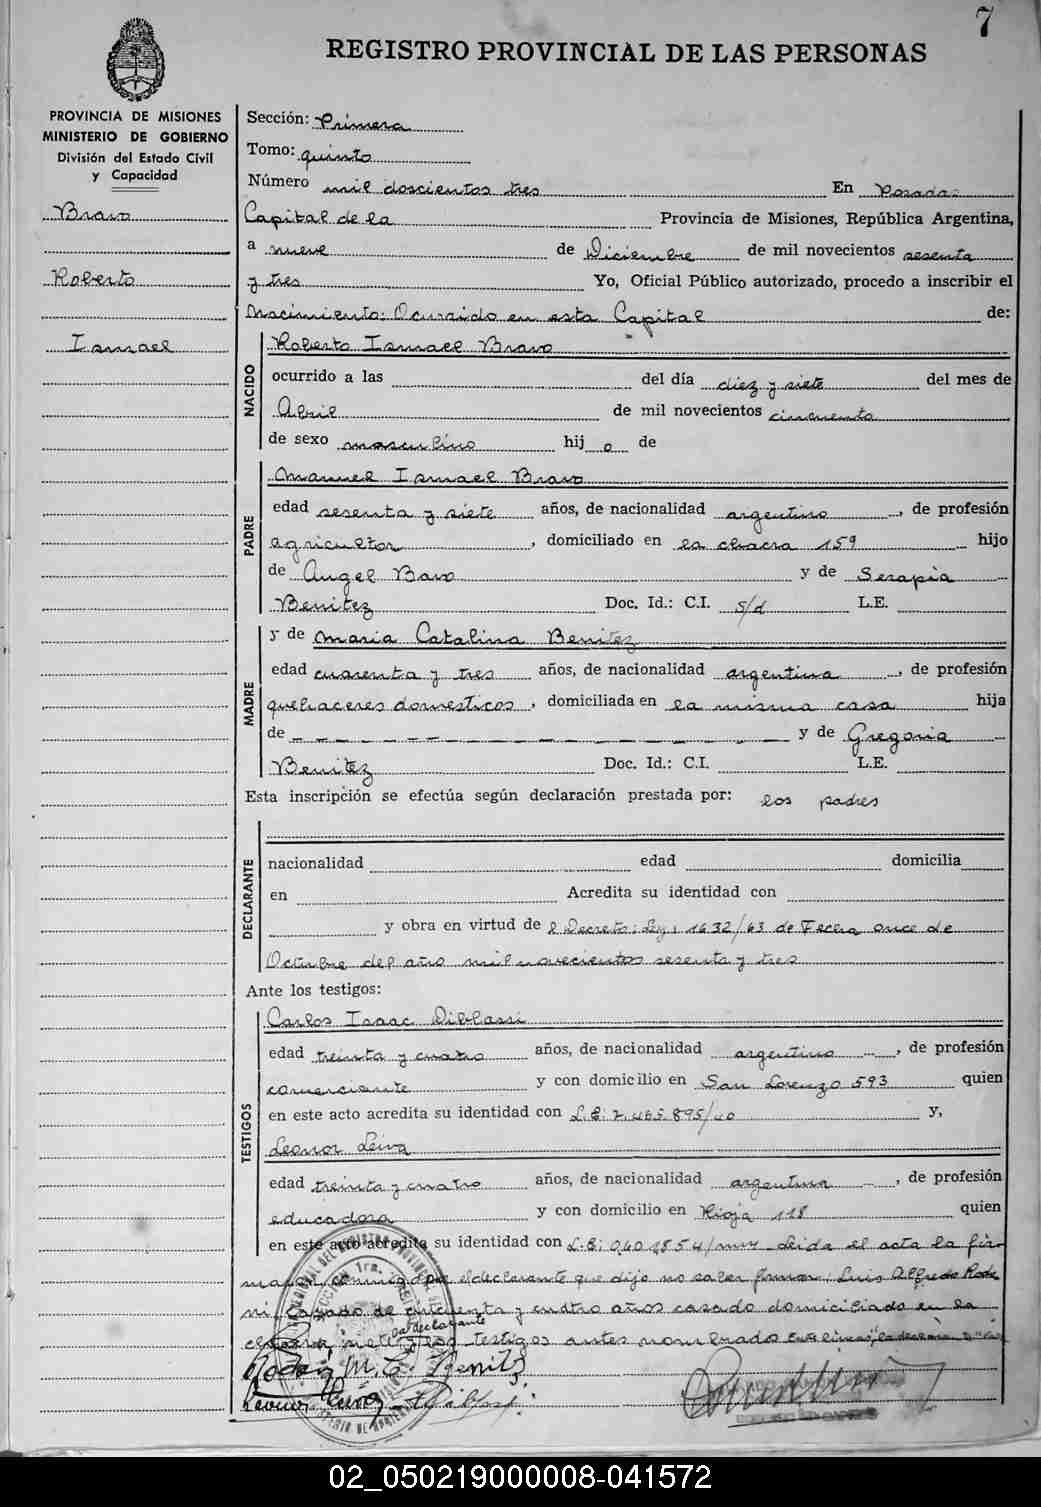 7
REGISTRO PROVINCIAL DE LAS PERSONAS
PROVINCIA DE MISIONES
MINISTERIO DE GOBIERNO
División del Estado Civil
y Capacidad
Bravo
Roberto
Ismael
Sección: Primera
Tomo: quinto
Número mil doscientos tres En Posadas
Capital de la Provincia de Misiones, República Argentina,
a nueve de Diciembre de mil novecientos sesenta
y tres Yo, Oficial Público autorizado, procedo a inscribir el
Nacimiento: Ocurrido en esta Capital de:
NACIDO
Roberto Ismael Bravo
ocurrido a las del día diez y siete del mes de
Abril de mil novecientos cincuenta
de sexo masculino hij o de
PADRE
Manuel Ismael Bravo
edad sesenta y siete años, de nacionalidad argentino, de profesión
agricultor, domiciliado en la chacra 159 hijo
de Angel Bavo y de Serapia
Benitez Doc. Id.: C.I. s/d L.E.
MADRE
y de Maria Catalina Benitez
edad cuarenta y tres años, de nacionalidad argentina, de profesión
quehaceres domesticos, domiciliada en la misma casa hija
de y de Gregoria
Benitez Doc. Id.: C.I. L.E.
Esta inscripción se efectúa según declaración prestada por: los padres
DECLARANTE
nacionalidad edad domicilia
en Acredita su identidad con
y obra en virtud de l Decreto: Ley: 1632/63 de Fecha once de
Octubre del año mil novecientos sesenta y tres
Ante los testigos:
TESTIGOS
Carlos Isaac Diblassi
edad treinta y cuatro años, de nacionalidad argentino, de profesión
comerciante y con domicilio en San Lorenzo 593 quien
en este acto acredita su identidad con L.E: 7.465.895/40 y,
Leonor Leiva
edad treinta y cuatro años, de nacionalidad argentina, de profesión
educadora y con domicilio en Rioja 118 quien
en este acto acredita su identidad con L.E: Leida el acta la fir-
man conmigo por el declarante que dijo no saber firmar, Luis Alfredo Rode
casado de cincuenta y cuatro años casado domiciliado en la
la declarante
chacra testigos antes nombrado
M. C. Benitz
02_050219000008-041572